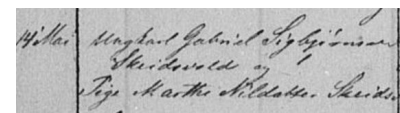 14 Mai Ungkarl Gabriel Sigbjörnsen
Skeidsvold og
Pige Marthe Nilsdatter Skeids